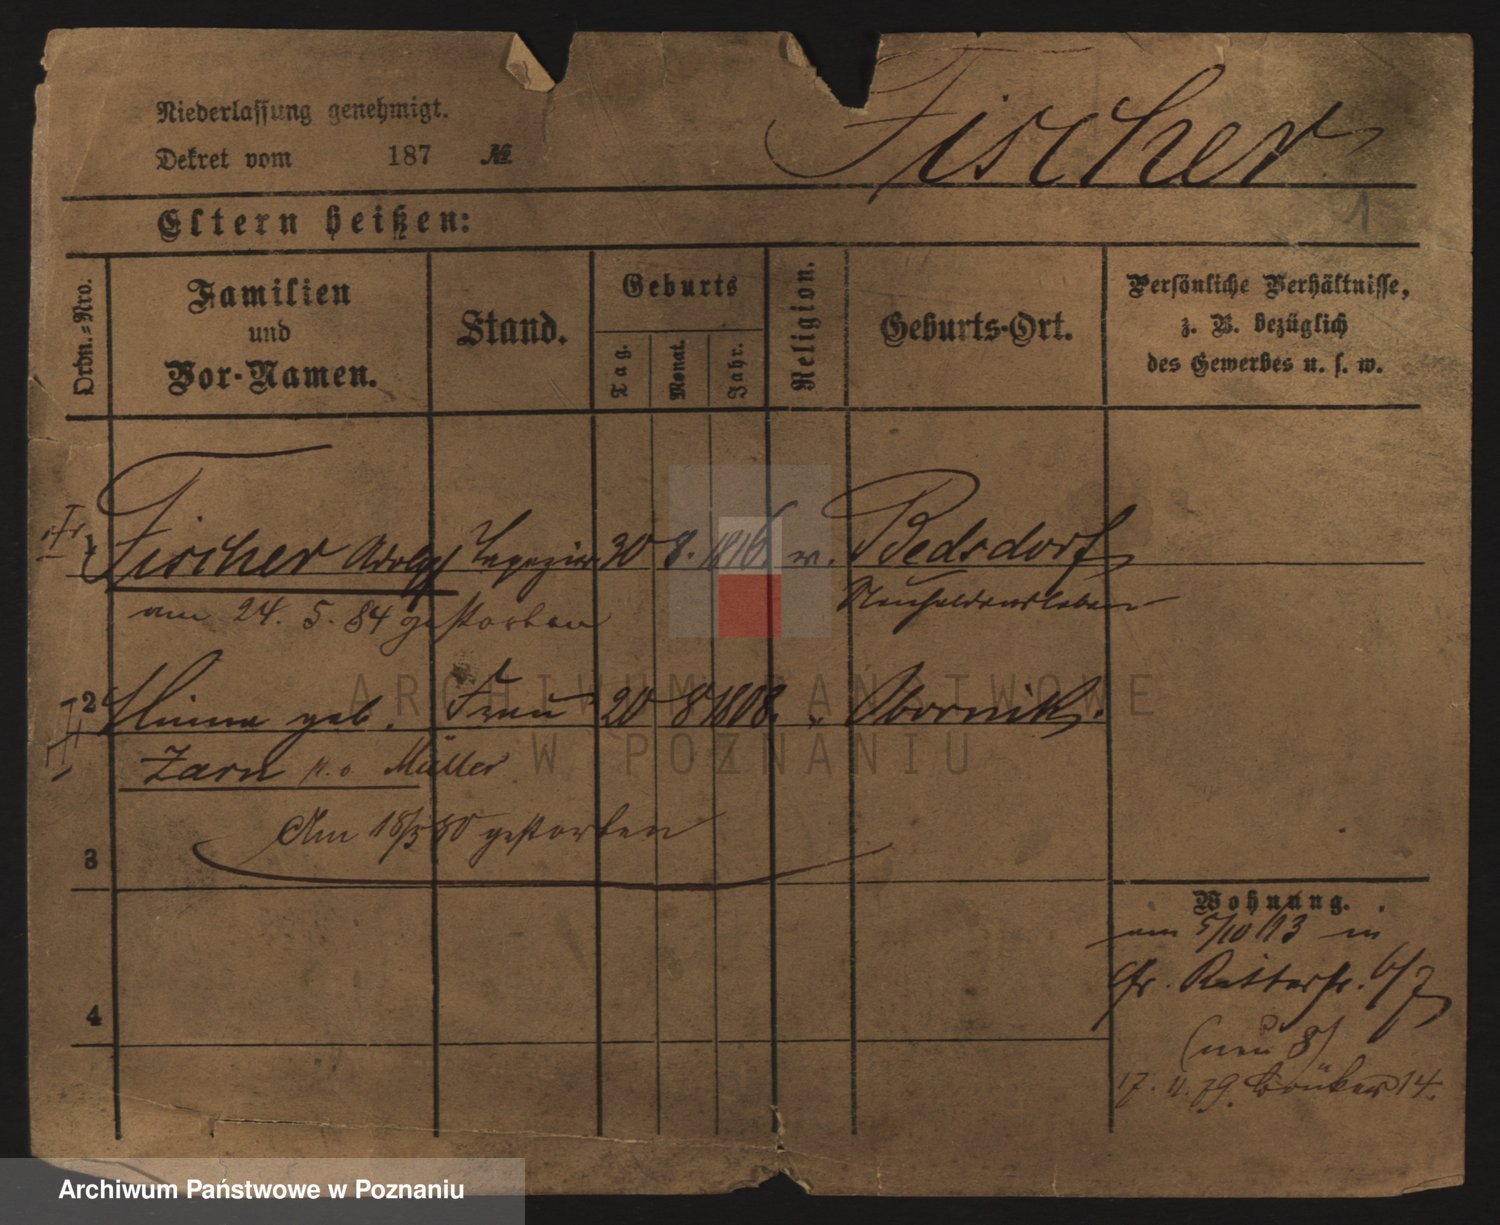 Niederlassung genehmigt.
Dekret vom 187 №
Fischer
1
Eltern heißen:
Ordn.=Nro.
Familien
und
Vor-Namen.
Stand.
Geburts
Tag.
Monat.
Jahr.
Religion.
Geburts-Ort.
Persönliche Verhältnisse,
z. B. bezüglich
des Gewerbes u. s. w.
1 Fischer Adolf Tapezier 30 8. 1816. ev. Bedsdorf
Neuhaldensleben
am 24. 5. 84 gestorben
2 Minna geb. Frau 20 8 1808. " Obornik.
Zarn Müller
Am 18/3 80 gestorben
3
4
Wohnung.
am 5/10 73 in
Gr. Ritterstr. 6/7
(neu 8)
17. 11. 79. 14.
ARCHIWUM PAŃSTWOWE
W POZNANIU
Archiwum Państwowe w Poznaniu